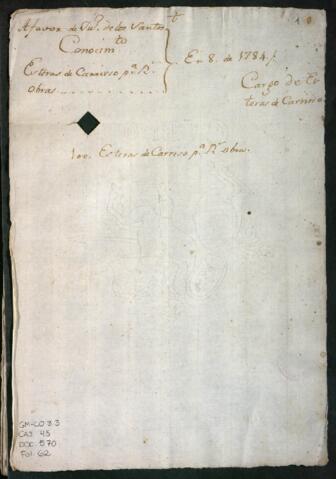 A favor de Jul. de los Santos
Conocim.to
Esteras de Carrizo p.a R.s
obras
En 8. de 1784.
Cargo de Es
teras de Carrizo
100. Esteras de Carriso p.a R.s obras.
GM-CO 3.3
CAJ 45
DOC 570
FOL 62